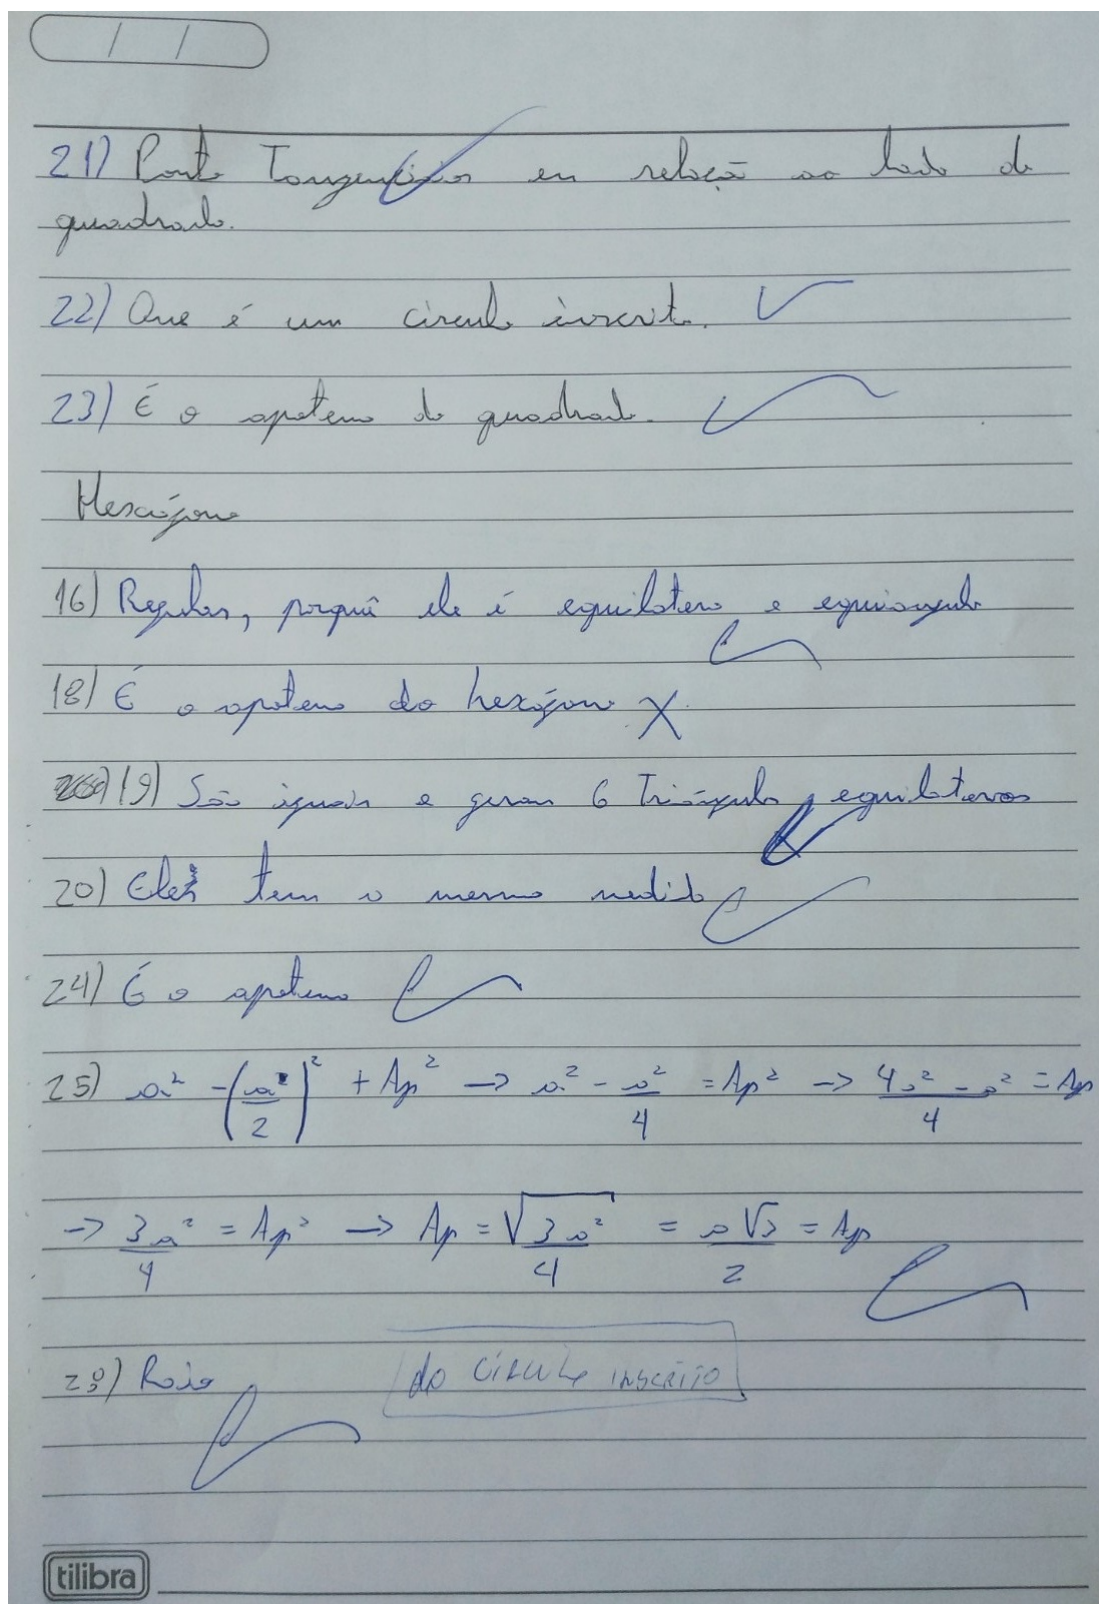 / /
21) Ponto Tangencias em relação ao lado do
quadrado.
22) Que é um circulo inscrito.
23) É o apotema do quadrado.
Hexágono
16) Regular, porquê ele é equilatero e equiangulo
18) É o apotema do hexágono X
19) São iguais e geram 6 Triângulos equilateros
20) Eles tem a mesma medida
24) É o apotema
25) a² - (a/2)² + Ap² -> a² - a²/4 = Ap² -> 4a² - a²/4 = Ap
-> 3a²/4 = Ap² -> Ap = √3a²/4 = a√3/2 = Ap
Raio do círculo inscrito
tilibra